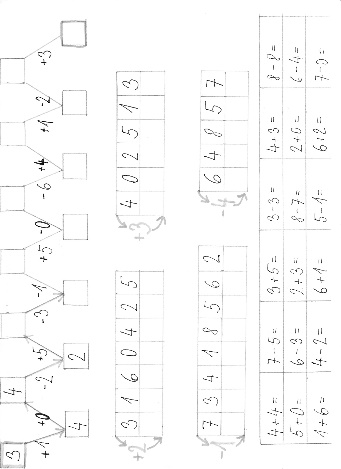 3 +1 4 +0 4 -2 2 +5 -3 -1 +5 -0 -6 +4 +1 -2 +3
+2 3 1 6 0 4 2 5
+3 4 0 2 5 1 3
-1 7 3 4 1 8 5 6 2
-4 6 4 8 5 7
4+4= 7-5= 3+5= 3-3= 4+3= 8-8=
5+0= 6-3= 2+3= 8-7= 2+6= 6-4=
1+6= 4-2= 6+1= 5-1= 6+2= 7-0=